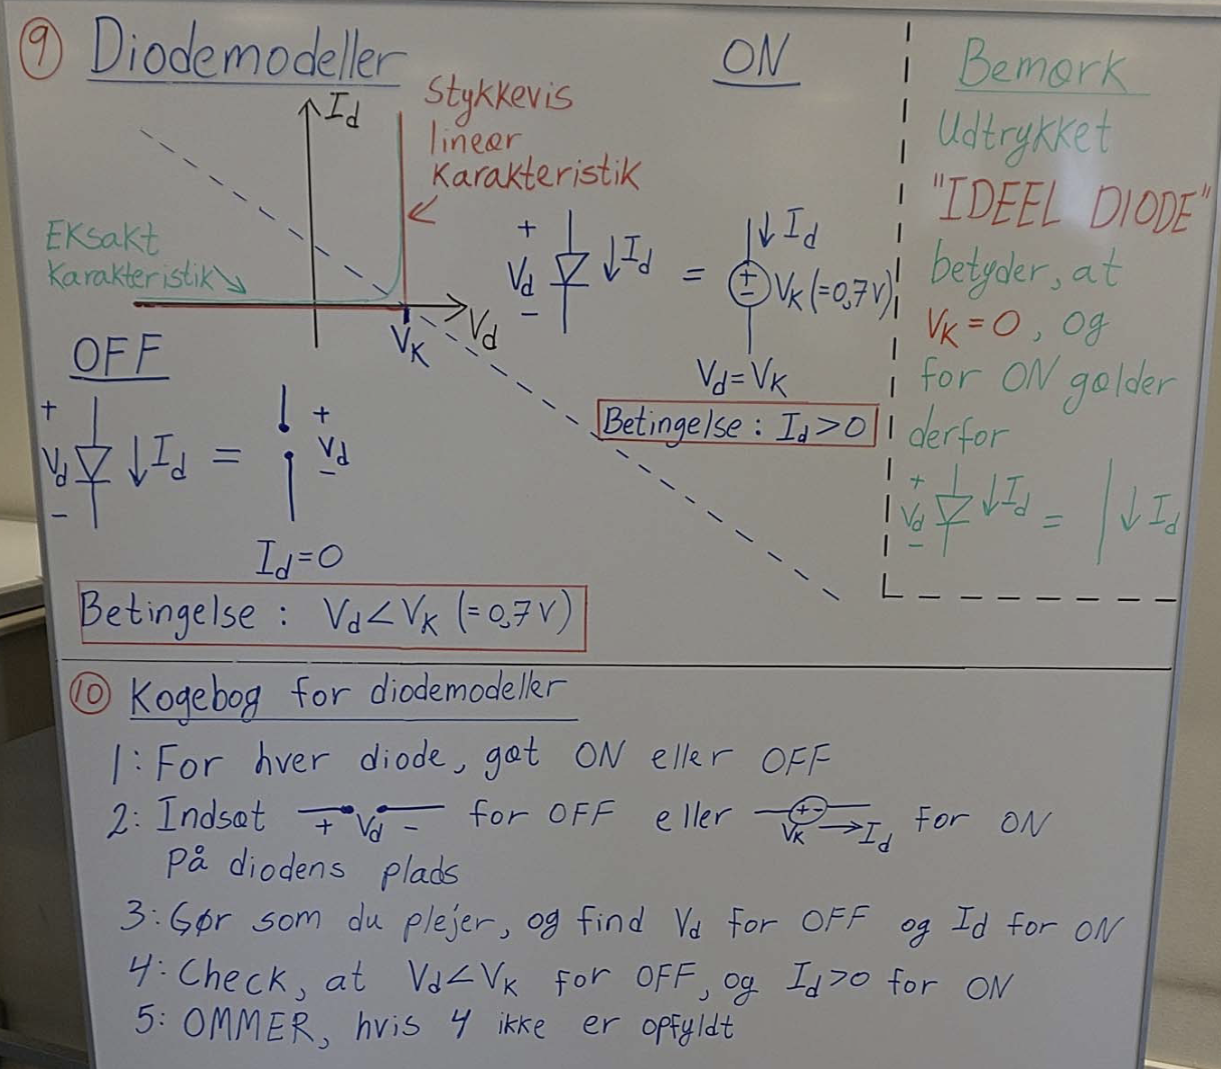 9 Diodemodeller
I_d
Stykkevis
lineær
karakteristik
Eksakt
karakteristik
V_K
V_d
ON
+
V_d
-
I_d
=
I_d
+
-
V_K (=0,7V)
V_d=V_K
Betingelse: I_d>0
OFF
+
V_d
-
I_d
=
+
V_d
-
I_d=0
Betingelse: V_d<V_K (=0,7V)
Bemærk
Udtrykket
"IDEEL DIODE"
betyder, at
V_K=0, og
for ON gælder
derfor
+
V_d
-
I_d
=
I_d
10 Kogebog for diodemodeller
1: For hver diode, gæt ON eller OFF
2: Indsæt + V_d - for OFF eller + - V_K I_d for ON
på diodens plads
3: Gør som du plejer, og find V_d for OFF og I_d for ON
4: Check, at V_d<V_K for OFF, og I_d>0 for ON
5: OMMER, hvis 4 ikke er opfyldt